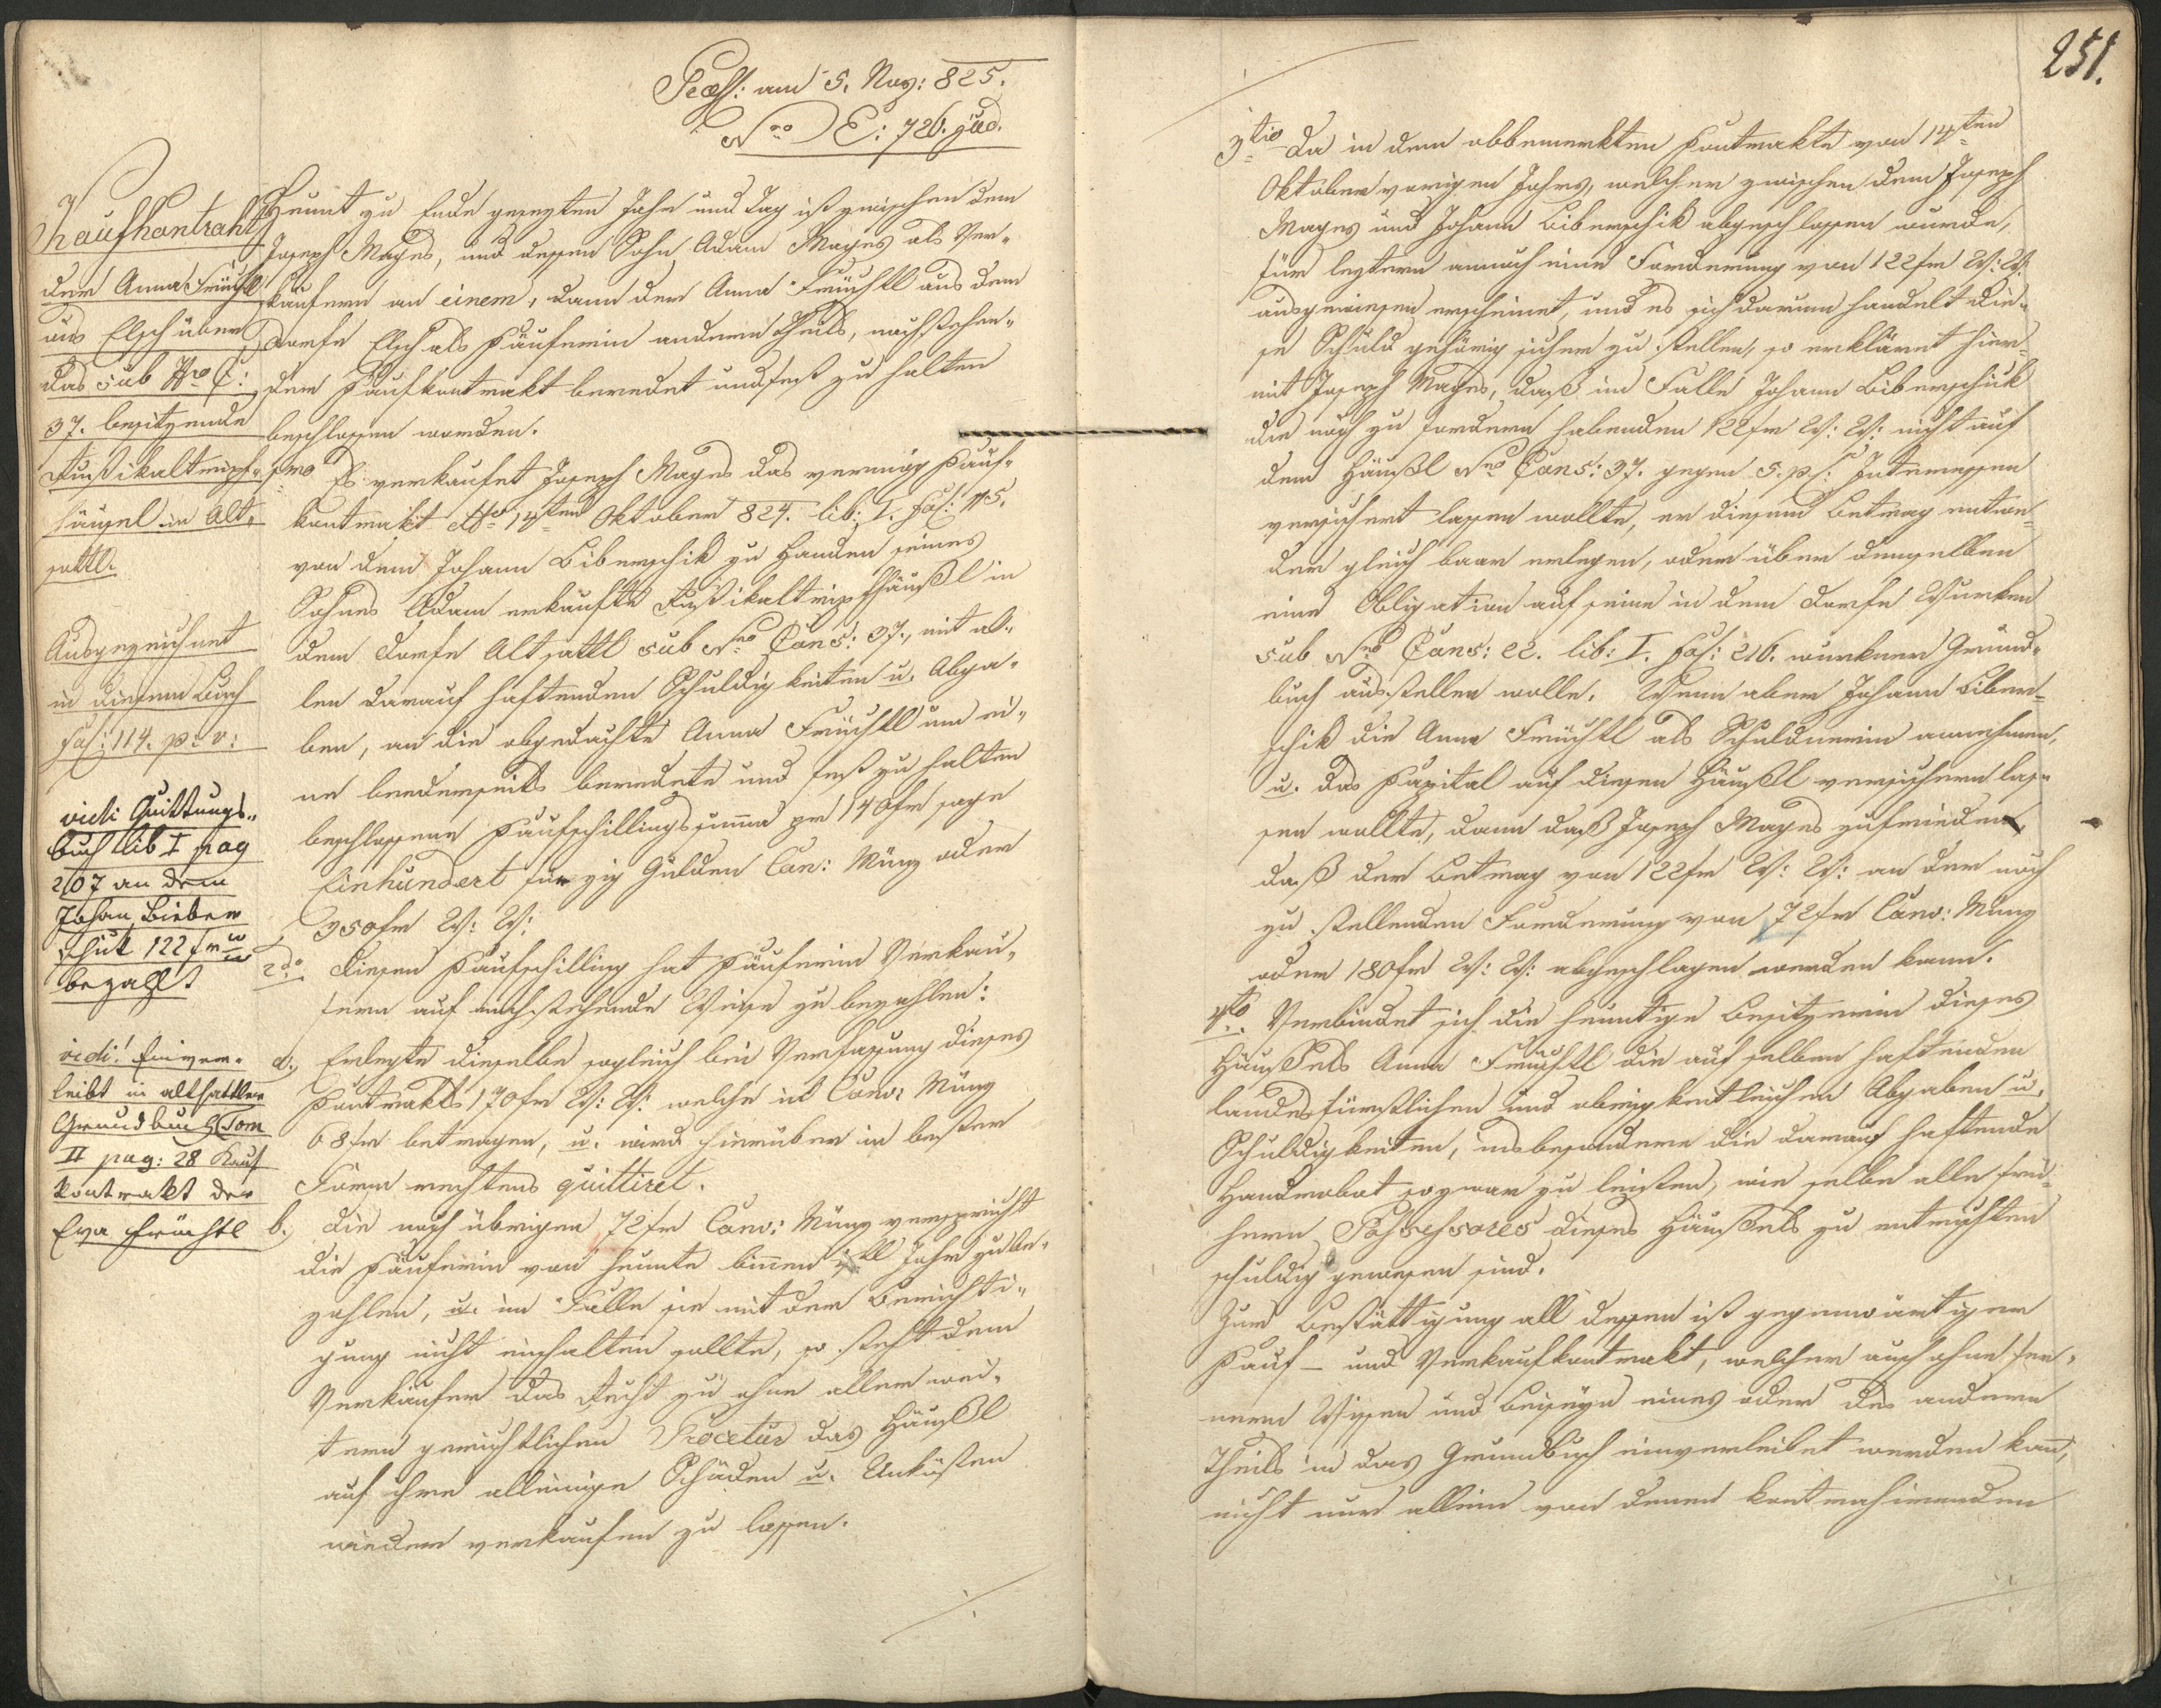 Præs: am 5. Nov: 825.
Nro E: 726. jud.
Kaufkontrakt
der Anna Früchtl
aus Elsch über
das sub Nro C:
37. besitzende
Rustikaltripf-
häusel in Alt-
sattl.
Ausgezeichnet
in diesem Buch
fol: 114. p: v:
vidi Quittungs-
buch lib I pag
207 an dem
Johan Bieber
schik 122 fr W
W
bezahlt
vidi! Einver-
leibt in altsattler
Grundbuch Tom
II pag: 28 Kauf
kontrakt der
Eva Früchtl
Heunt zu Ende gesezten Jahr und Tag ist zwischen dem
Joseph Mages, und dessen Sohn Adam Mages als Ver-
käufern an einem, dann der Anna Früchtl aus dem
Dorfe Elsch als Käuferin anderen Theils, nachstehen-
der Kaufkontrakt beredet und fest zu halten
beschlossen worden.
1mo Es verkaufet Joseph Mages das vermög Kauf-
kontrakt ddto 14ten Oktober 824. lib: I. fol: 115.
von dem Johann Biberschik zu Handen seines
Sohnes Adam erkaufte Rustikaltripfhäußl in
dem Dorfe Altsattl sub Nro Cons: 37., mit al-
len darauf haftenden Schuldigkeiten u. Abga-
ben, an die obgedachte Anna Früchtl um ei-
ne beederseits beredete und fest zu halten
beschlossene Kaufschillingssumma pr 140 fr sage
Einhundert vierzig Gulden Con: Münz oder
350 fr W: W:
2do Diesen Kaufschilling hat Käuferin Verkäu-
fern auf nachstehende Weise zu bezahlen:
a., Erlegte dieselbe sogleich bei Verfassung dieses
Kontrakts 170 fr W: W: welche in Conv: Münz
68 fr betragen, u. wird hierüber in bester
Form rechtens quittiret.
b. Die noch übrigen 72 fr Conv: Münz verspricht
die Käuferin von heunte binnen Jahr zu be-
zahlen, u. im Falle sie mit der Berichti-
gung nicht einhalten sollte, so steht dem
Verkäufer das Recht zu ohne aller wei-
tern gerichtlichen Procetur das Häußl
auf ihre alleinige Schäden u. Unkosten
wieder verkaufen zu lassen.
251.
3tio Da in dem obbemerkten Kontrakte von 14ten
Oktober vorigen Jahrs, welcher zwischen dem Joseph
Mages und Johann Biberschik abgeschlossen wurde,
für leztern annoch eine Forderung von 122 fr W: W:
ausgewiesen erscheinet, und es sich darum handelt die-
se Schuld gehörig sicher zu stellen, so erkläret hier-
mit Joseph Mages, daß im Falle Johann Biberschik
die noch zu fordern habenden 122 fr W: W: nicht auf
dem Häußl Nro Cons: 37. gegen 5. p C: Interessen
versichert lassen wollte, er diesem Betrag entwe-
der gleich baar erlegen, oder über denselben
eine Obligation auf seine in dem Dorfe Wurken
sub Nro Cons: 22. lib: I. fol: 216. wurkner Grund-
buch ausstellen wolle. Wenn aber Johann Biber-
schik die Anna Früchtl als Schuldnerin annehmen,
u. das Kapital auf diesen Häußl versichern las-
sen wollte, dann daß Joseph Mages zufrieden,
daß der Betrag von 122 fr W: W: an der noch
zu stellenden Forderung von 72 fr Conv: Münz
oder 180 fr W: W: abgeschlagen werden kann.
4to Verbindet sich die heuntige Besitzerin dieses
Häußels Anna Früchtl die auf selben haftenden
landesfürstlichen und obrigkeitlichen Abgaben u.
Schuldigkeiten, insbesondere die darauf haftende
Handrobat sogwar zu leisten, wie selbe alle frü-
hern Possessores dieses Häußels zu entrichten
schuldig gewesen sind.
Zur Bestättigung all dessen ist gegenwärtiger
Kauf- und Verkaufkontrakt, welcher auch ohne fer-
nern Wissen und Beiseyn eines oder des andern
Theils in das Grundbuch einverleibet werden kann,
nicht nur allein von denen kontrahirenden